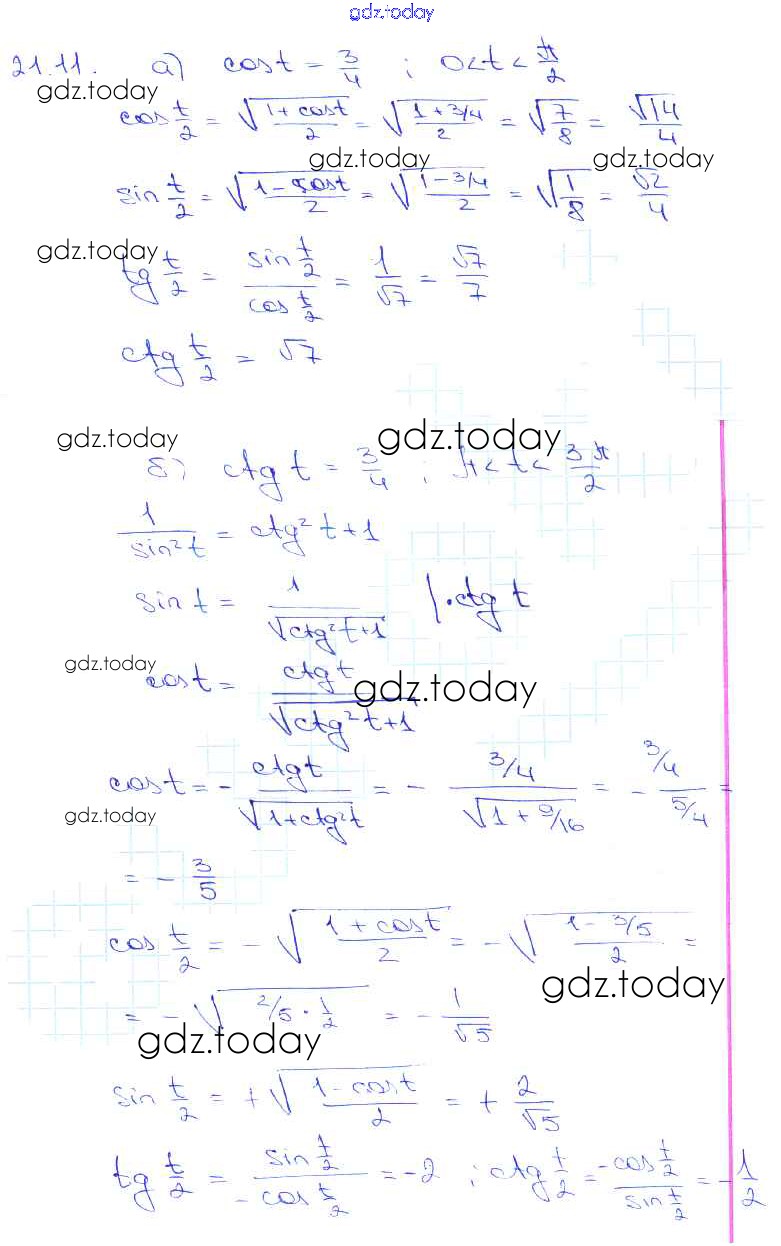 gdz.today
21.11. а) cos t = 3/4 ; 0 < t < π/2
gdz.today
cos t/2 = √((1 + cos t)/2) = √((1 + 3/4)/2) = √(7/8) = √14/4
gdz.today gdz.today
sin t/2 = √((1 − cos t)/2) = √((1 − 3/4)/2) = √(1/8) = √2/4
gdz.today
tg t/2 = (sin t/2)/(cos t/2) = 1/√7 = √7/7
ctg t/2 = √7
gdz.today gdz.today
б) ctg t = 3/4 ; π < t < 3π/2
1/(sin² t) = ctg² t + 1
sin t = 1/√(ctg² t + 1) | · ctg t
gdz.today
cos t = ctg t/√(ctg² t + 1)
gdz.today
cos t = − ctg t/√(1 + ctg² t) = − (3/4)/√(1 + 9/16) = − (3/4)/(5/4) =
gdz.today
= − 3/5
cos t/2 = − √((1 + cos t)/2) = − √((1 − 3/5)/2) =
gdz.today
= − √(2/5 · 1/2) = − 1/√5
gdz.today
sin t/2 = + √((1 − cos t)/2) = + 2/√5
tg t/2 = (sin t/2)/(− cos t/2) = −2 ; ctg t/2 = (− cos t/2)/(sin t/2) = − 1/2